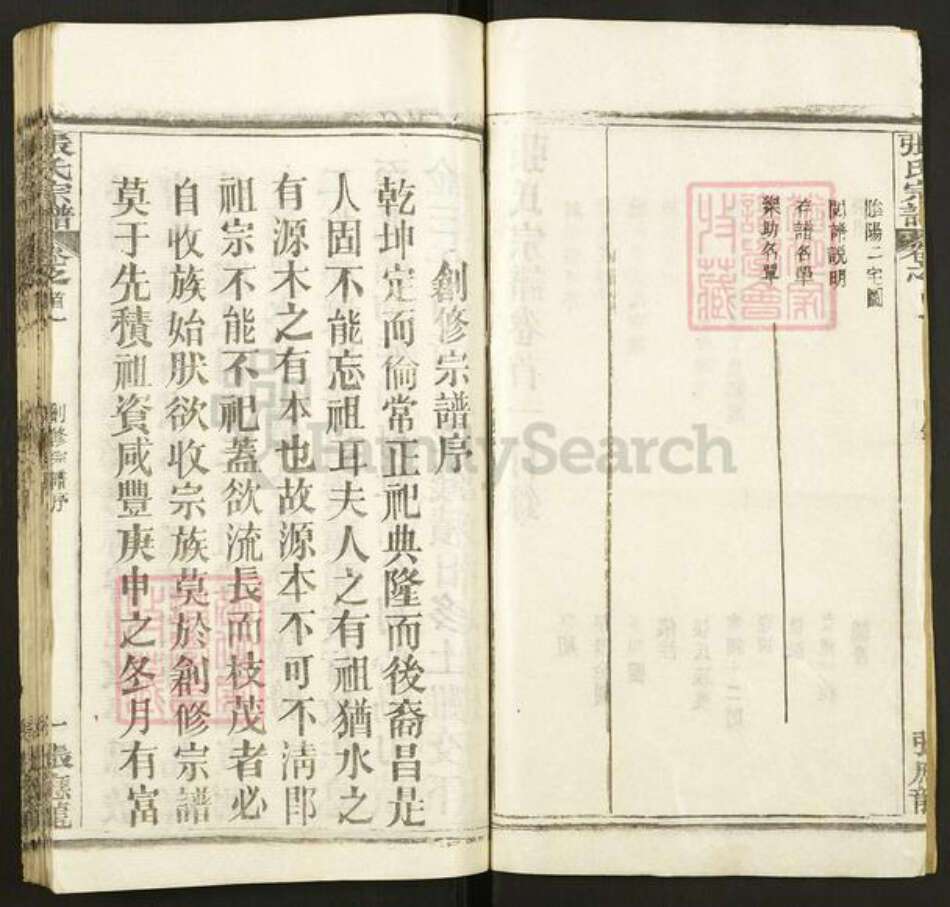 陰陽二宅圖
閱譜説明
存譜名單
樂助名單
張氏宗譜
創修宗譜序
乾坤定而倫常正祀典隆而後裔昌是
人固不能忘祖耳夫人之有祖猶水之
有源木之有本也故源本不可不清即
祖宗不能不祀蓋欲流長而枝茂者必
自收族始肰欲收宗族莫於創修宗譜
莫于先積祖資咸豐庚申之冬月有富
張氏宗譜
卷之首一
創修宗譜序
一
張應龍
FamilySearch